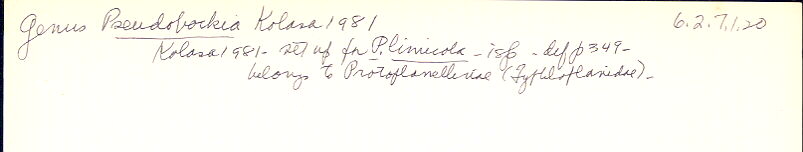 Genus Pseudobockia Kolasa 1981 6.2.7.1.20
Kolasa 1981 - set up for P. limicola - isp - def p 349 -
belongs to Protoplanellinae (Typhloplanidae) -